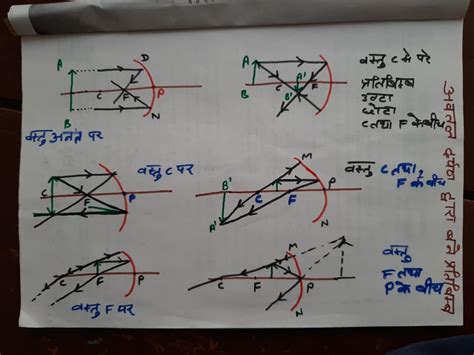 अवतल दर्पण द्वारा बने प्रतिबिम्ब
A
D
C
F
P
B
N
वस्तु अनंत पर
A
B
C
A'
B'
F
वस्तु C से परे
प्रतिबिम्ब
उल्टा
छोटा
C तथा F के बीच
C
F
P
वस्तु C पर
M
B'
A'
C
F
P
N
वस्तु C तथा
F के बीच
C
F
P
वस्तु F पर
M
C
F
P
N
वस्तु
F तथा
P के बीच